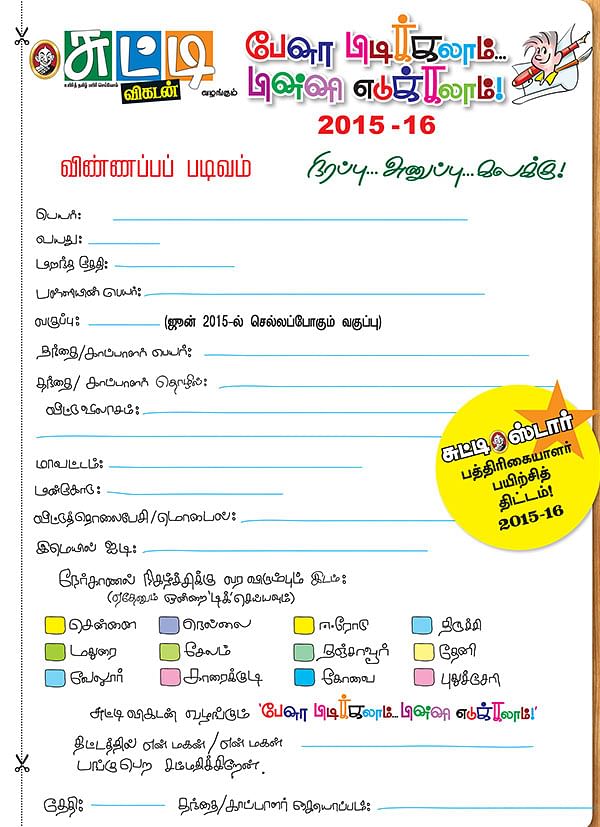 சுட்டி
உயிர்த் தமிழ் பயிர் செய்வோம்
விகடன்
வழங்கும்
பேனா பிடிக்கலாம்...
பின்னி எடுக்கலாம்!
2015 -16
விண்ணப்பப் படிவம்
நிரப்பு... அனுப்பு... கலக்கு!
பெயர்:
வயது:
பிறந்த தேதி:
பள்ளியின் பெயர்:
வகுப்பு: (ஜூன் 2015-ல் செல்லப்போகும் வகுப்பு)
தந்தை/காப்பாளர் பெயர்:
தந்தை/ காப்பாளர் தொழில்:
வீட்டு விலாசம்:
மாவட்டம்:
பின்கோடு:
வீட்டுத்தொலைபேசி/மொபைல்:
இமெயில் ஐடி:
சுட்டி ஸ்டார்
பத்திரிகையாளர்
பயிற்சித்
திட்டம்!
2015-16
நேர்காணல் நிகழ்ச்சிக்கு வர விரும்பும் இடம்:
(ஏதேனும் ஒன்றை 'டிக்' செய்யவும்)
சென்னை நெல்லை ஈரோடு திருச்சி
மதுரை சேலம் தஞ்சாவூர் தேனி
வேலூர் காரைக்குடி கோவை புதுச்சேரி
சுட்டி விகடன் வழங்கும் 'பேனா பிடிக்கலாம்... பின்னி எடுக்கலாம்!'
திட்டத்தில் என் மகன் / என் மகள்
பங்கு பெற சம்மதிக்கிறேன்.
தேதி: தந்தை/காப்பாளர் கையொப்பம்: